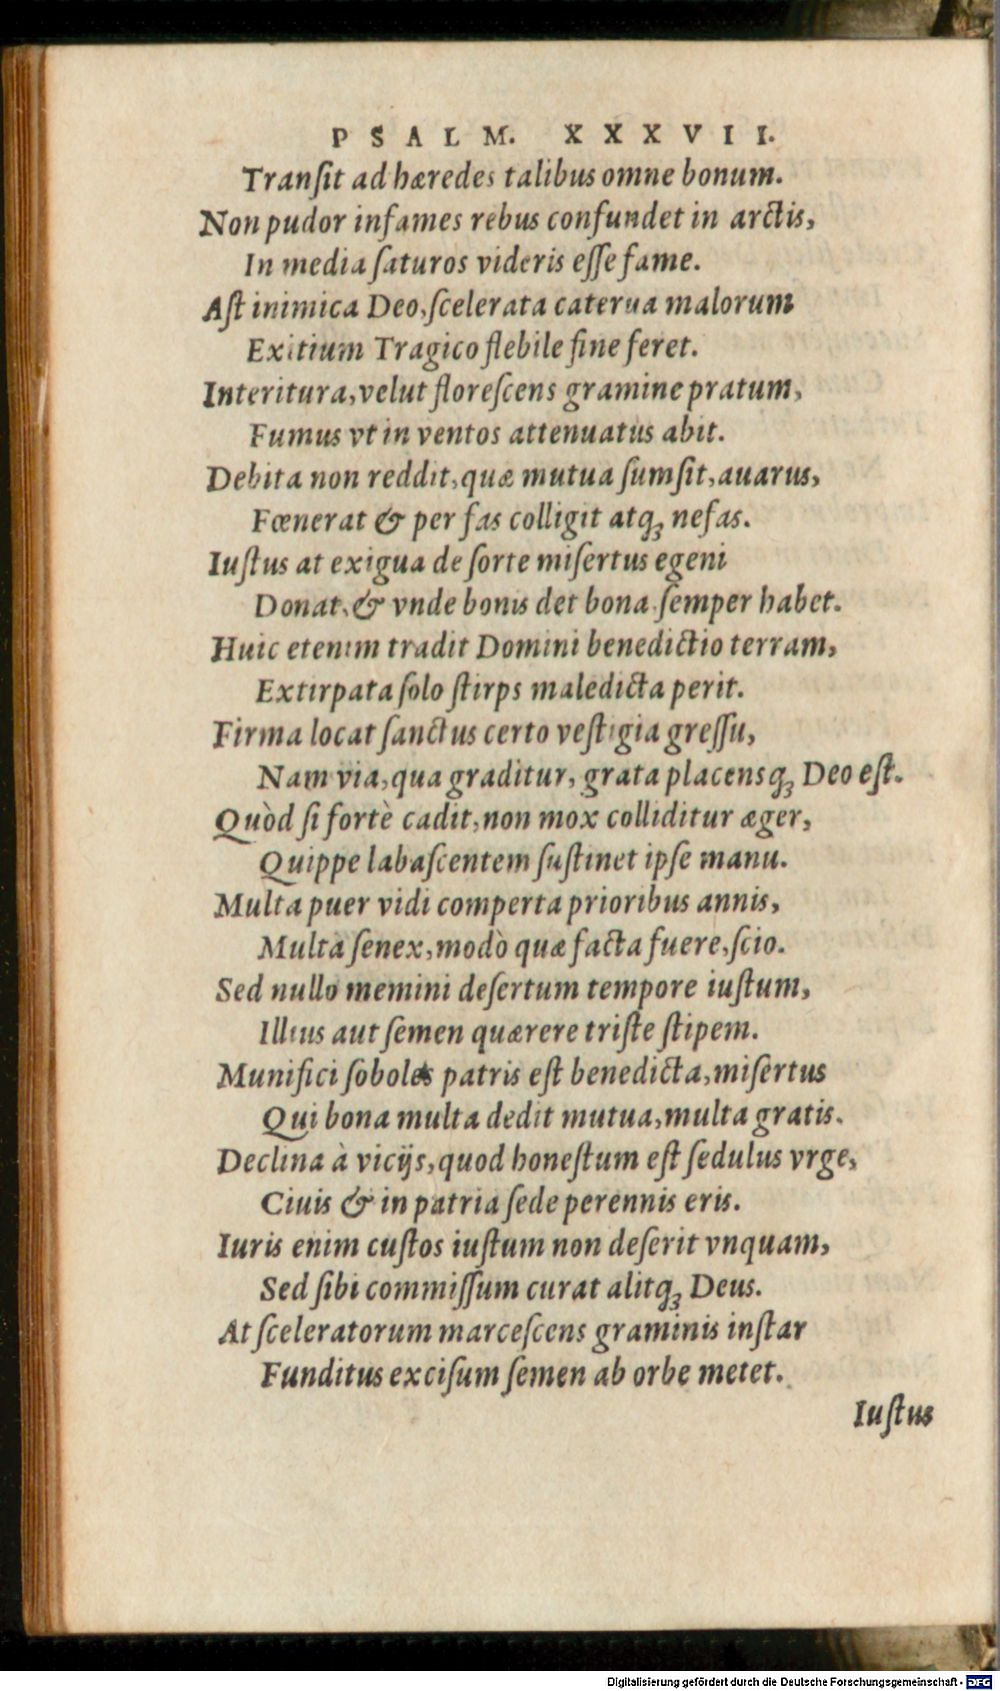 PSALM. XXXVII.
Tranſit ad hæredes talibus omne bonum.
Non pudor infames rebus confundet in arctis,
In media ſaturos videris eſſe fame.
Aſt inimica Deo, ſcelerata caterua malorum
Exitium Tragico flebile fine feret.
Interitura, velut floreſcens gramine pratum,
Fumus vt in ventos attenuatus abit.
Debita non reddit, quæ mutua ſumſit, auarus,
Fœnerat & per fas colligit atq; nefas.
Iuſtus at exigua de ſorte miſertus egeni
Donat, & vnde bonis det bona ſemper habet.
Huic etenim tradit Domini benedictio terram,
Extirpata ſolo ſtirps maledicta perit.
Firma locat ſanctus certo veſtigia greſſu,
Nam via, qua graditur, grata placensq; Deo eſt.
Quòd ſi fortè cadit, non mox colliditur æger,
Quippe labaſcentem ſuſtinet ipſe manu.
Multa puer vidi comperta prioribus annis,
Multa ſenex, modò quæ facta fuere, ſcio.
Sed nullo memini deſertum tempore iuſtum,
Illius aut ſemen quærere triſte ſtipem.
Munifici ſoboles patris eſt benedicta, miſertus
Qui bona multa dedit mutua, multa gratis.
Declina à vicijs, quod honeſtum eſt ſedulus vrge,
Ciuis & in patria ſede perennis eris.
Iuris enim cuſtos iuſtum non deſerit vnquam,
Sed ſibi commiſſum curat alitq; Deus.
At ſceleratorum marceſcens graminis inſtar
Funditus exciſum ſemen ab orbe metet.
Iuſtus
Digitalisierung gefördert durch die Deutsche Forschungsgemeinschaft - DFG